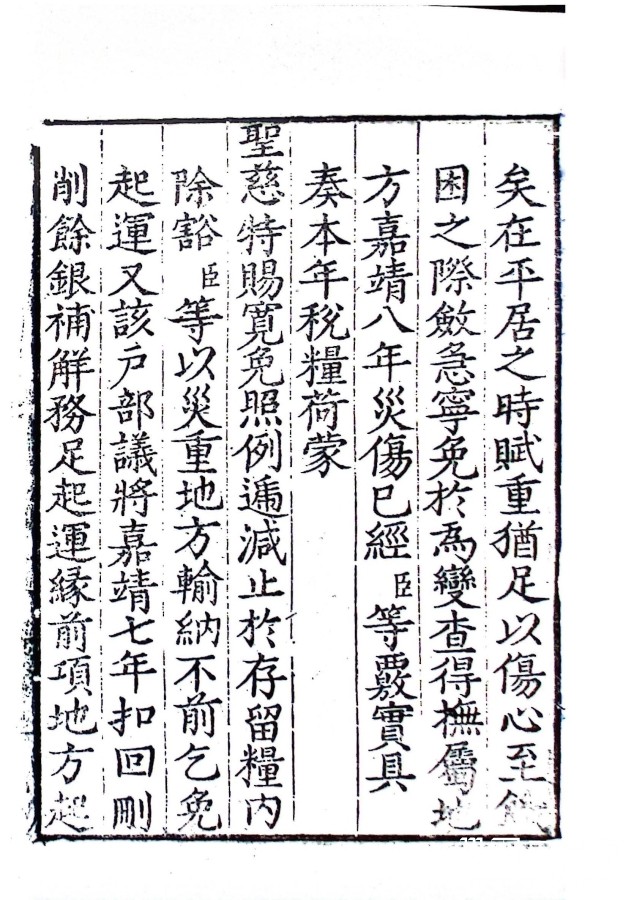 矣在平居之時賦重猶足以傷心至飢
困之際斂急寧免於為變查得撫屬地
方嘉靖八年災傷已經臣等覈實具
奏本年稅糧荷蒙
聖慈特賜寬免照例遞減止於存留糧內
除豁臣等以災重地方輸納不前乞免
起運又該戶部議將嘉靖七年扣回刪
削餘銀補解務足起運緣前項地方起